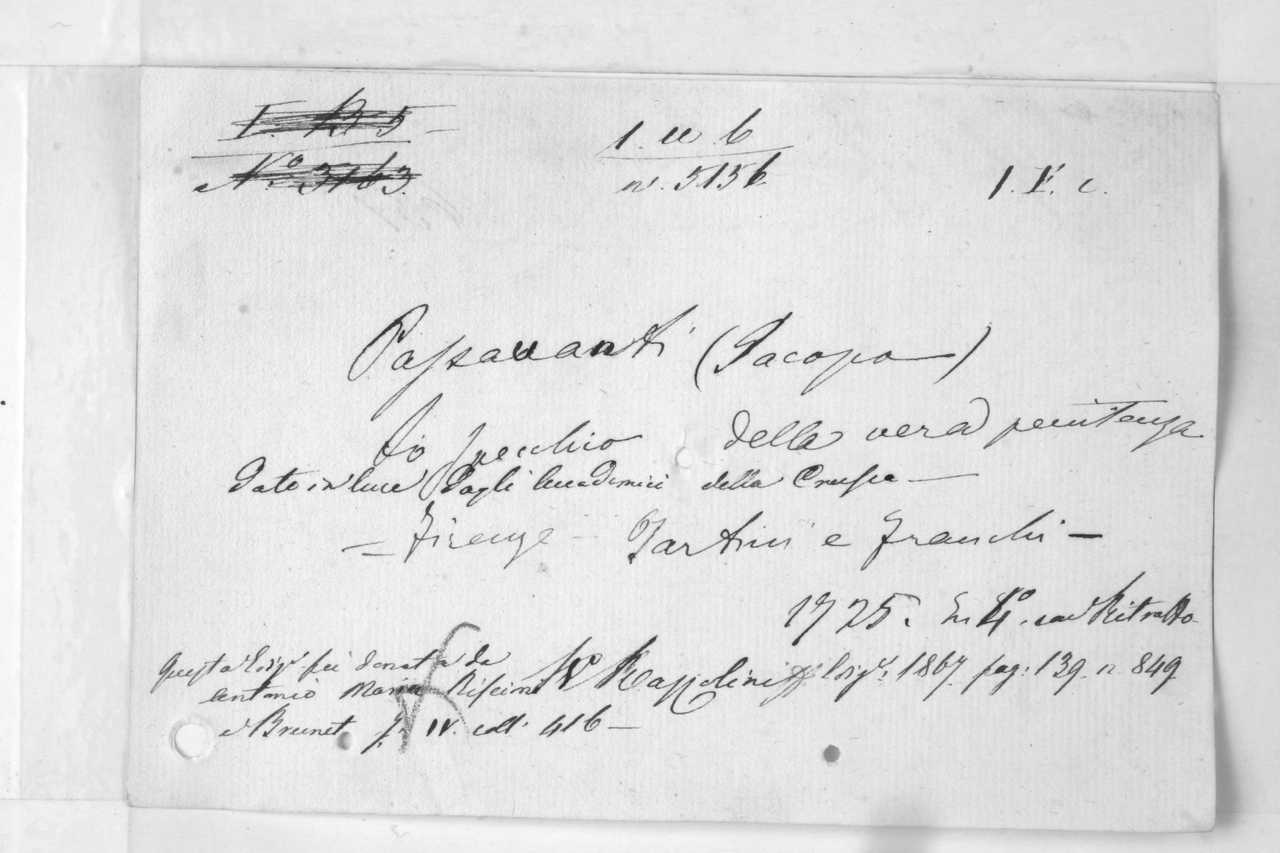 I. B 5
N.º 3163
1. w b
nº. 5156
1. F. c.
Passavanti (Jacopo)
Lo Specchio della vera penitenza
Dato in luce dagli Accademici della Crusca —
— Firenze — Tartini e Franchi —
1725. In 4º. con Ritratto
Questa fu donata da
Antonio Maria
Vº Razzolini 1867. pag: 139. n. 849
e Brunet IV. coll. 416 —